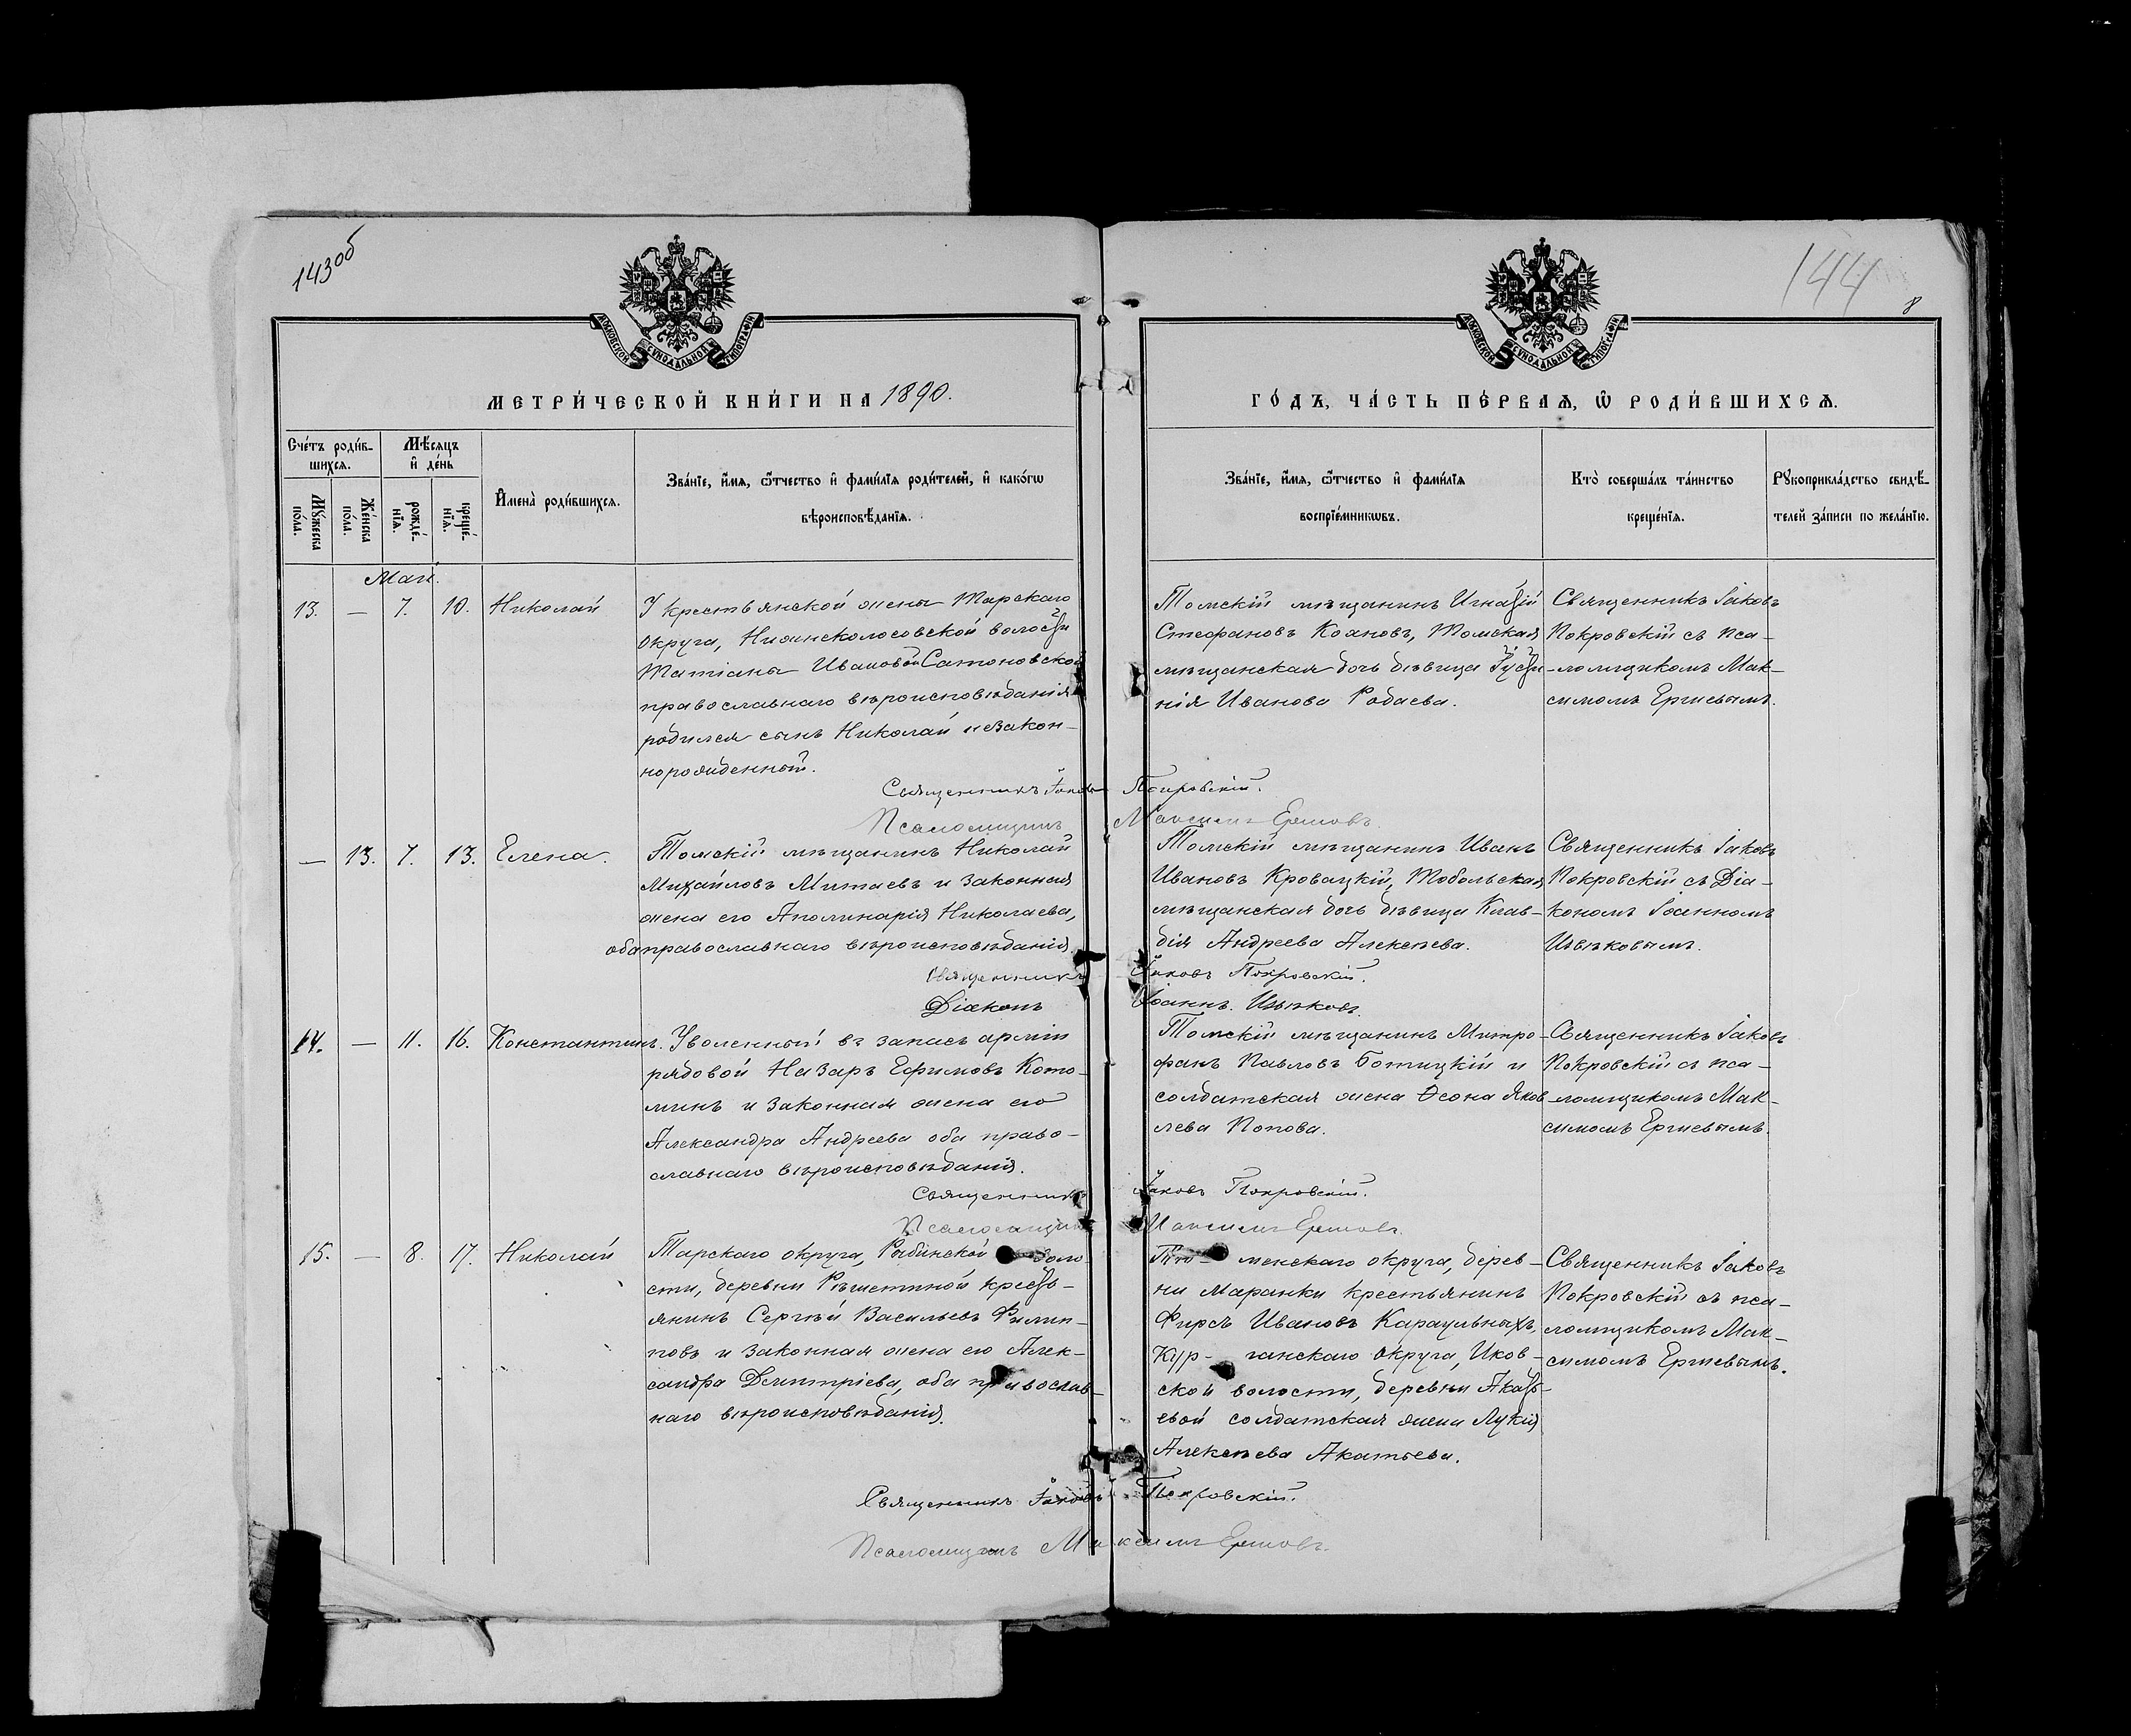 143об
144
8
МОСКОВСКОЙ СѴНОДАЛЬНОЙ ТИПОГРАФІИ
МОСКОВСКОЙ СѴНОДАЛЬНОЙ ТИПОГРАФІИ
МЕТРИ́ЧЕСКОЙ КНИ́ГИ НА 1890.
ГО́ДЪ, ЧА́СТЬ ПЕ́РВАѦ, Ѡ҆ РОДИ́ВШИХСѦ.
Сче́тъ роди́в-
шихсѧ.
Мѣ́сѧцъ
и҆ де́нь
Мꙋ́жеска
по́ла.
Же́нска
по́ла.
рожде́-
нїѧ.
креще́-
нїѧ.
И҆мена̀ роди́вшихсѧ.
Зва́нїе, и҆́мѧ, ѻ҆́тчество и҆ фами́лїѧ роди́телей, и҆ како́гѡ
вѣроисповѣ́данїѧ.
Зва́нїе, и҆́мѧ, ѻ҆́тчество и҆ фами́лїѧ
воспрїе́мникѡвъ.
Кто̀ соверша́лъ та́инство
креще́нїѧ.
Рꙋкоприкла́дство свидѣ́-
телей за́писи по жела́нїю.
Май.
13. — 7. 10. Николай
У крестьянской жены Тарскаго
округа, Нижнеколосовской волости
Татіаны Ивановой Сатоновской
православнаго вѣроисповѣданія
родился сынъ Николай незакон-
норожденный.
Томскій мѣщанинъ Игнатій
Стефановъ Кохновъ, Томская
мѣщанская дочь дѣвица Іусти-
нія Иванова Родаева.
Священникъ Іаковъ
Покровскій съ пса-
ломщикомъ Мак-
симомъ Ершевымъ.
Священникъ Іаковъ Покровскій.
Псаломщикъ Максимъ Ершовъ.
— 13. 7. 13. Елена.
Томскій мѣщанинъ Николай
Михайловъ Митаевъ и законная
жена его Аполинарія Николаева,
оба православнаго вѣроисповѣданія.
Томскій мѣщанинъ Иванъ
Ивановъ Кровацкій, Тобольская
мѣщанская дочь дѣвица Клав-
дія Андреева Алексѣева.
Священникъ Іаковъ
Покровскій съ Діа-
кономъ Іоанномъ
Ивѣковымъ.
Священникъ Іаковъ Покровскій.
Діаконъ Іоаннъ Ивѣковъ.
14. — 11. 16. Константинъ.
Уволенный въ запасъ арміи
рядовой Назаръ Ефимовъ Кото-
минъ и законная жена его
Александра Андреева оба право-
славнаго вѣроисповѣданія.
Томскій мѣщанинъ Митро-
фанъ Павловъ Ботицкій и
солдатская жена Ѳеона Яков
лева Попова.
Священникъ Іаковъ
Покровскій съ пса-
ломщикомъ Мак-
симомъ Ершевымъ.
Священникъ Іаковъ Покровскій.
Псаломщикъ Максимъ Ершовъ.
15. — 8. 17. Николай
Тарскаго округа, Рыбинской воло-
сти, деревни Рѣшетиной кресть-
янинъ Сергѣй Васильевъ Филип-
повъ и законная жена его Алек-
сандра Дмитріева, оба православ-
наго вѣроисповѣданія.
Тю- менскаго округа, дерев-
ни Маранки крестьянинъ
Фирсъ Ивановъ Караульныхъ,
Кур- ганскаго округа, Иков-
ской волости, деревни Акать-
евой солдатская жена Лукія
Алексѣева Акатьева.
Священникъ Іаковъ
Покровскій съ пса-
ломщикомъ Мак-
симомъ Ершевымъ.
Священникъ Іаковъ Покровскій.
Псаломщикъ Максимъ Ершовъ.